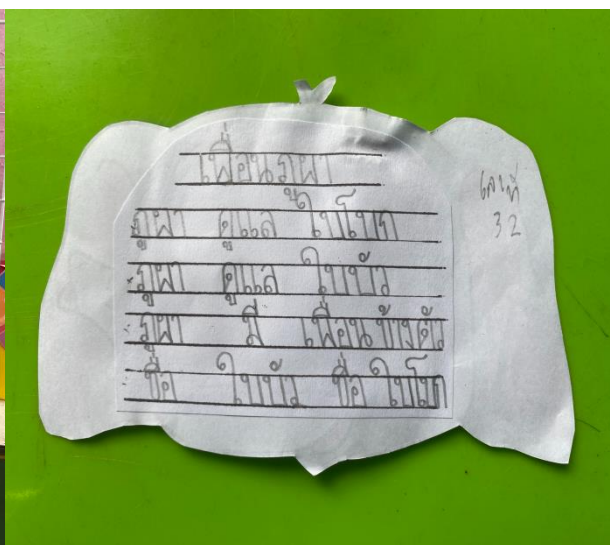 เพื่อนภูผา
ภูผา ดูแล ใบโบก
ภูผา ดูแล ใบบัว
ภูผา มี เพื่อนช้าง
ชื่อ ใบบัว ชื่อ ใบโบก
เลขที่
32